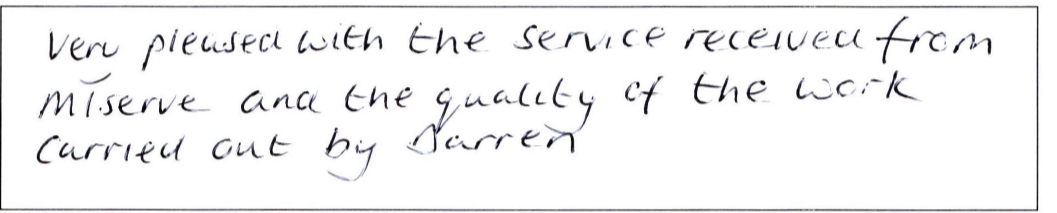 Very pleased with the service received from
Miserve and the quality of the work
carried out by Darren